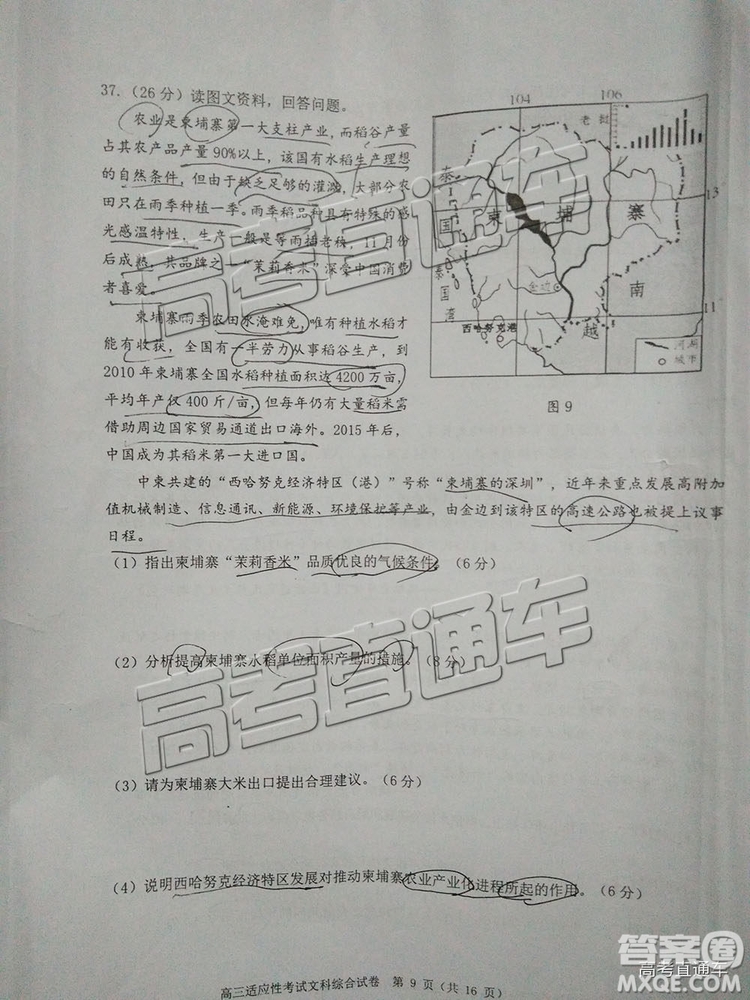 37.（26分）读图文资料，回答问题。
农业是柬埔寨第一大支柱产业，而稻谷产量
占其农产品产量90%以上，该国有水稻生产理想
的自然条件，但由于缺乏足够的灌溉，大部分农
田只在雨季种植一季。雨季稻品种具有特殊的感
光感温特性，生产一般是等雨插老秧，11月份
后成熟，其品牌之一“茉莉香米”深受中国消费
者喜爱。
柬埔寨雨季农田水淹难免，唯有种植水稻才
能有收获，全国有一半劳力从事稻谷生产，到
2010年柬埔寨全国水稻种植面积达4200万亩，
平均年产仅400斤/亩，但每年仍有大量稻米需
借助周边国家贸易通道出口海外。2015年后，
中国成为其稻米第一大进口国。
104
106
老挝
泰
国
柬埔寨
13
泰
国
湾
金边
南
11
西哈努克港
越
河湖
城市
图9
中柬共建的“西哈努克经济特区（港）”号称“柬埔寨的深圳”，近年来重点发展高附加
值机械制造、信息通讯、新能源、环境保护等产业，由金边到该特区的高速公路也被提上议事
日程。
（1）指出柬埔寨“茉莉香米”品质优良的气候条件。（6分）
（2）分析提高柬埔寨水稻单位面积产量的措施。（8分）
（3）请为柬埔寨大米出口提出合理建议。（6分）
（4）说明西哈努克经济特区发展对推动柬埔寨农业产业化进程所起的作用。（6分）
高三适应性考试文科综合试卷 第9页（共16页）
高考直通车
高考直通车
答案圈
高考直通车
MXQE.COM